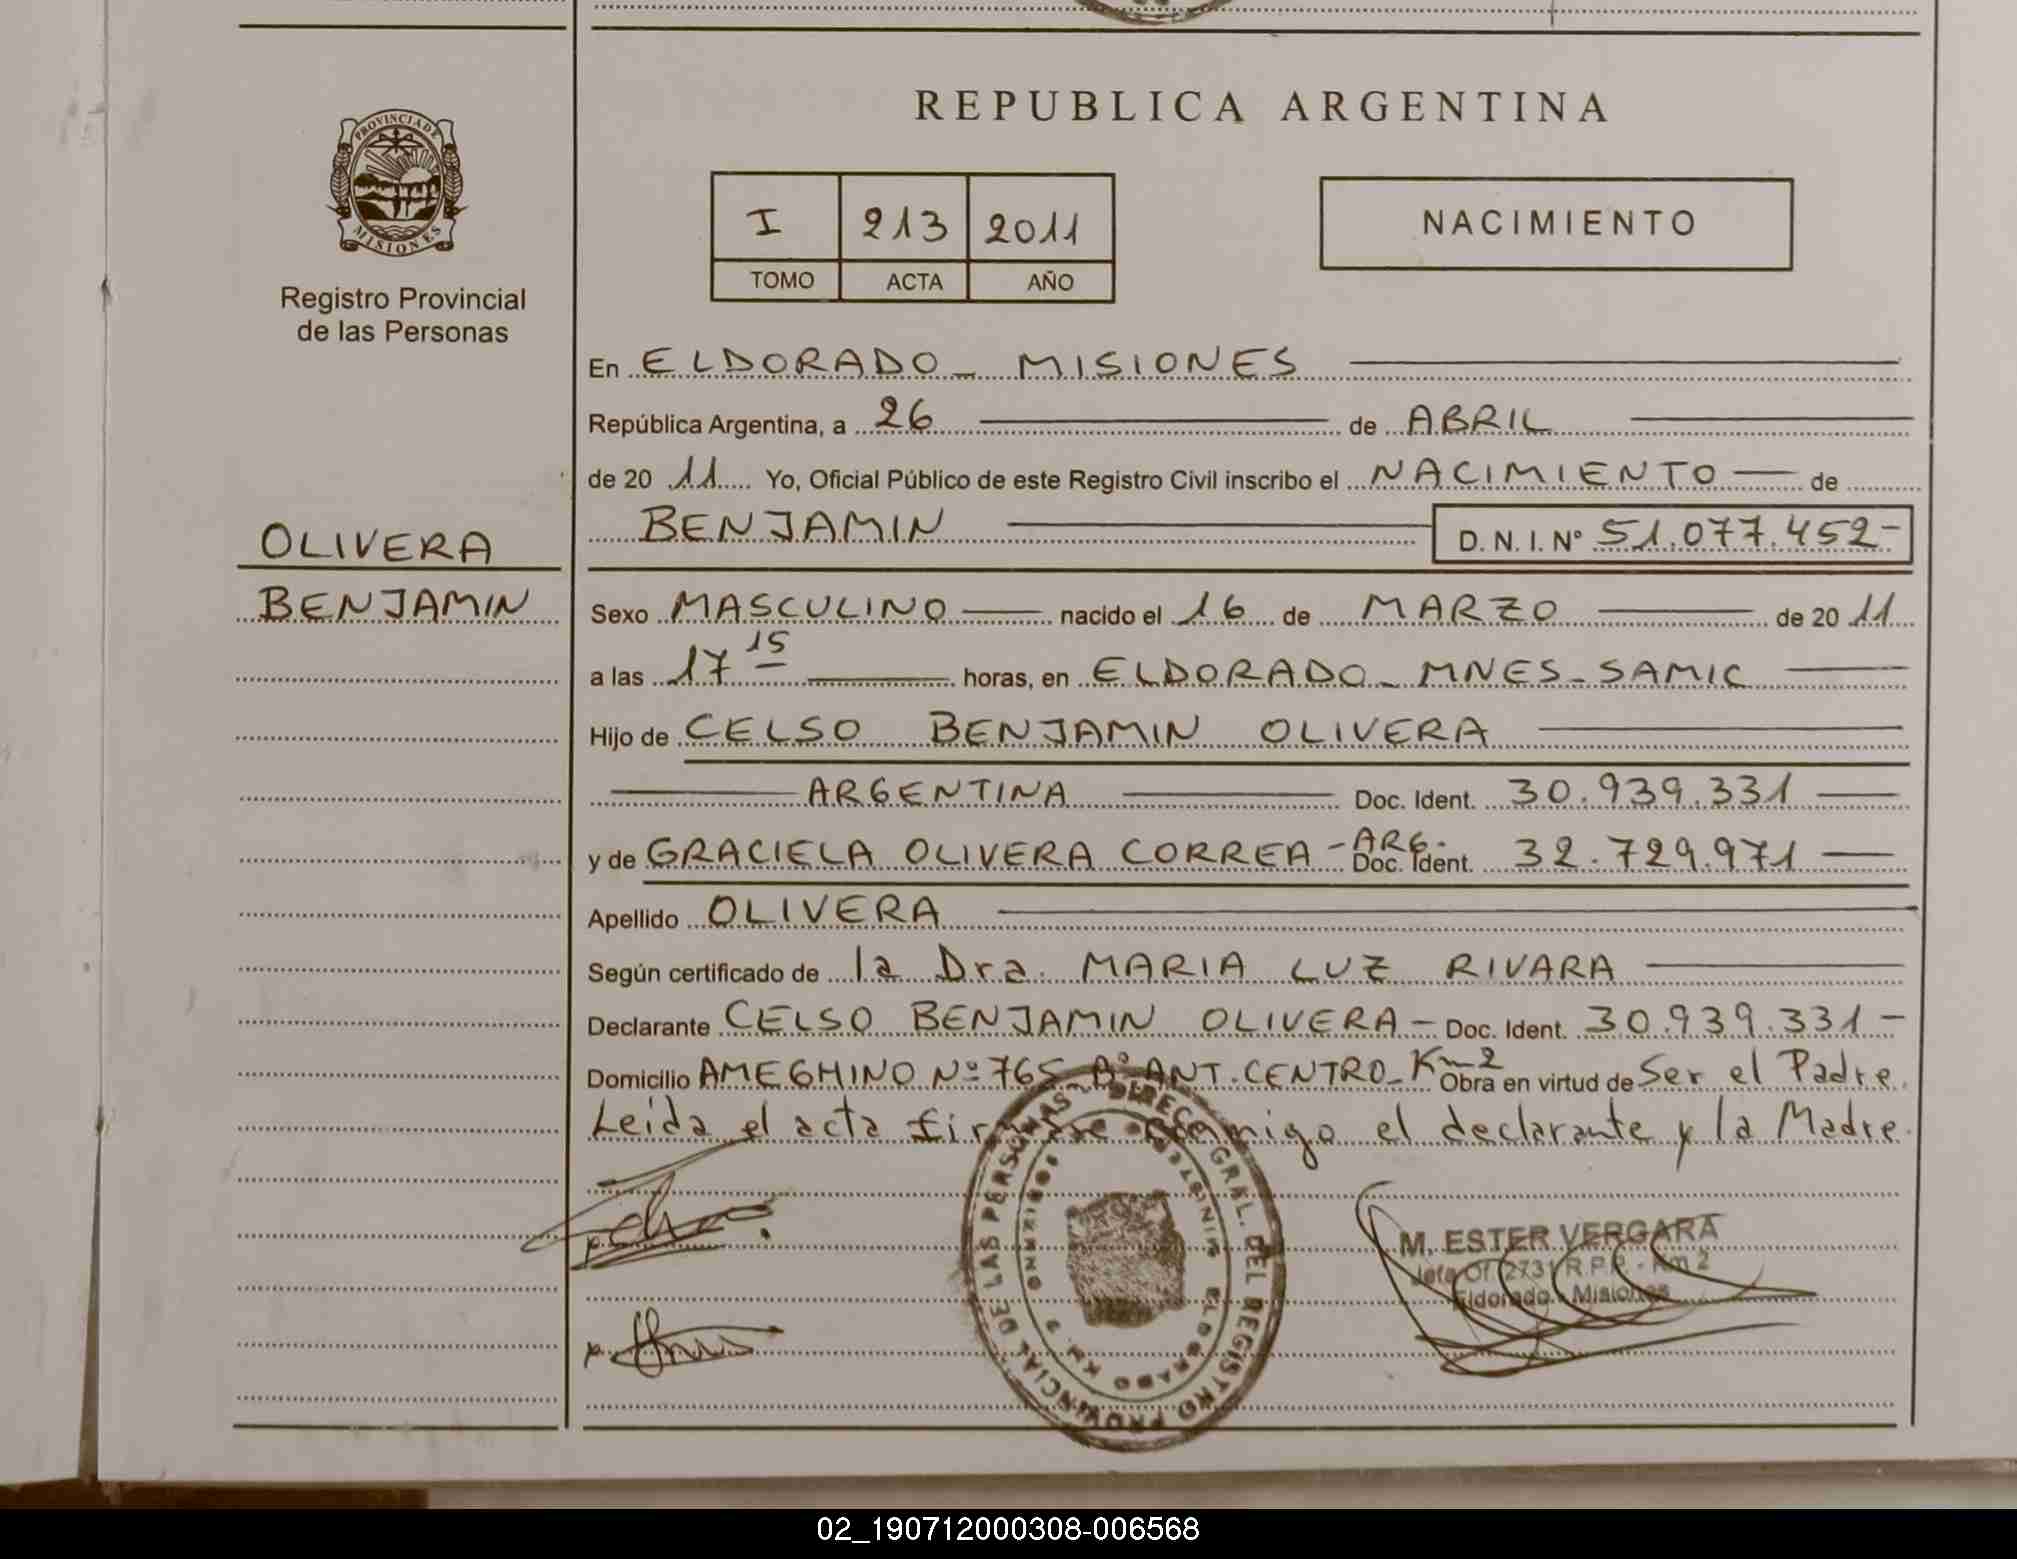 REPUBLICA ARGENTINA
PROVINCIA DE
MISIONES
Registro Provincial
de las Personas
I 213 2011
TOMO ACTA AÑO
NACIMIENTO
En ELDORADO - MISIONES
República Argentina, a 26 de ABRIL
de 20 11 Yo, Oficial Público de este Registro Civil inscribo el NACIMIENTO de
BENJAMIN D. N. I. N° 51.077.452-
OLIVERA
BENJAMIN
Sexo MASCULINO nacido el 16 de MARZO de 20 11
a las 17 15 horas, en ELDORADO - MNES - SAMIC
Hijo de CELSO BENJAMIN OLIVERA
ARGENTINA Doc. Ident. 30.939.331
y de GRACIELA OLIVERA CORREA - ARG. Doc. Ident. 32.729.971
Apellido OLIVERA
Según certificado de la Dra. MARIA LUZ RIVARA
Declarante CELSO BENJAMIN OLIVERA - Doc. Ident. 30.939.331 -
Domicilio AMEGHINO Nº 765 - B° ANT. CENTRO - Km 2 Obra en virtud de Ser el Padre.
Leída el acta conmigo el declarante y la Madre.
DIREC. GRAL. DEL REGISTRO PROVINCIAL DE LAS PERSONAS
ELDORADO KM. 2
M. ESTER VERGARA
Jefa Of. 2731 R.P.P. - Km 2
Eldorado - Misiones
02_190712000308-006568